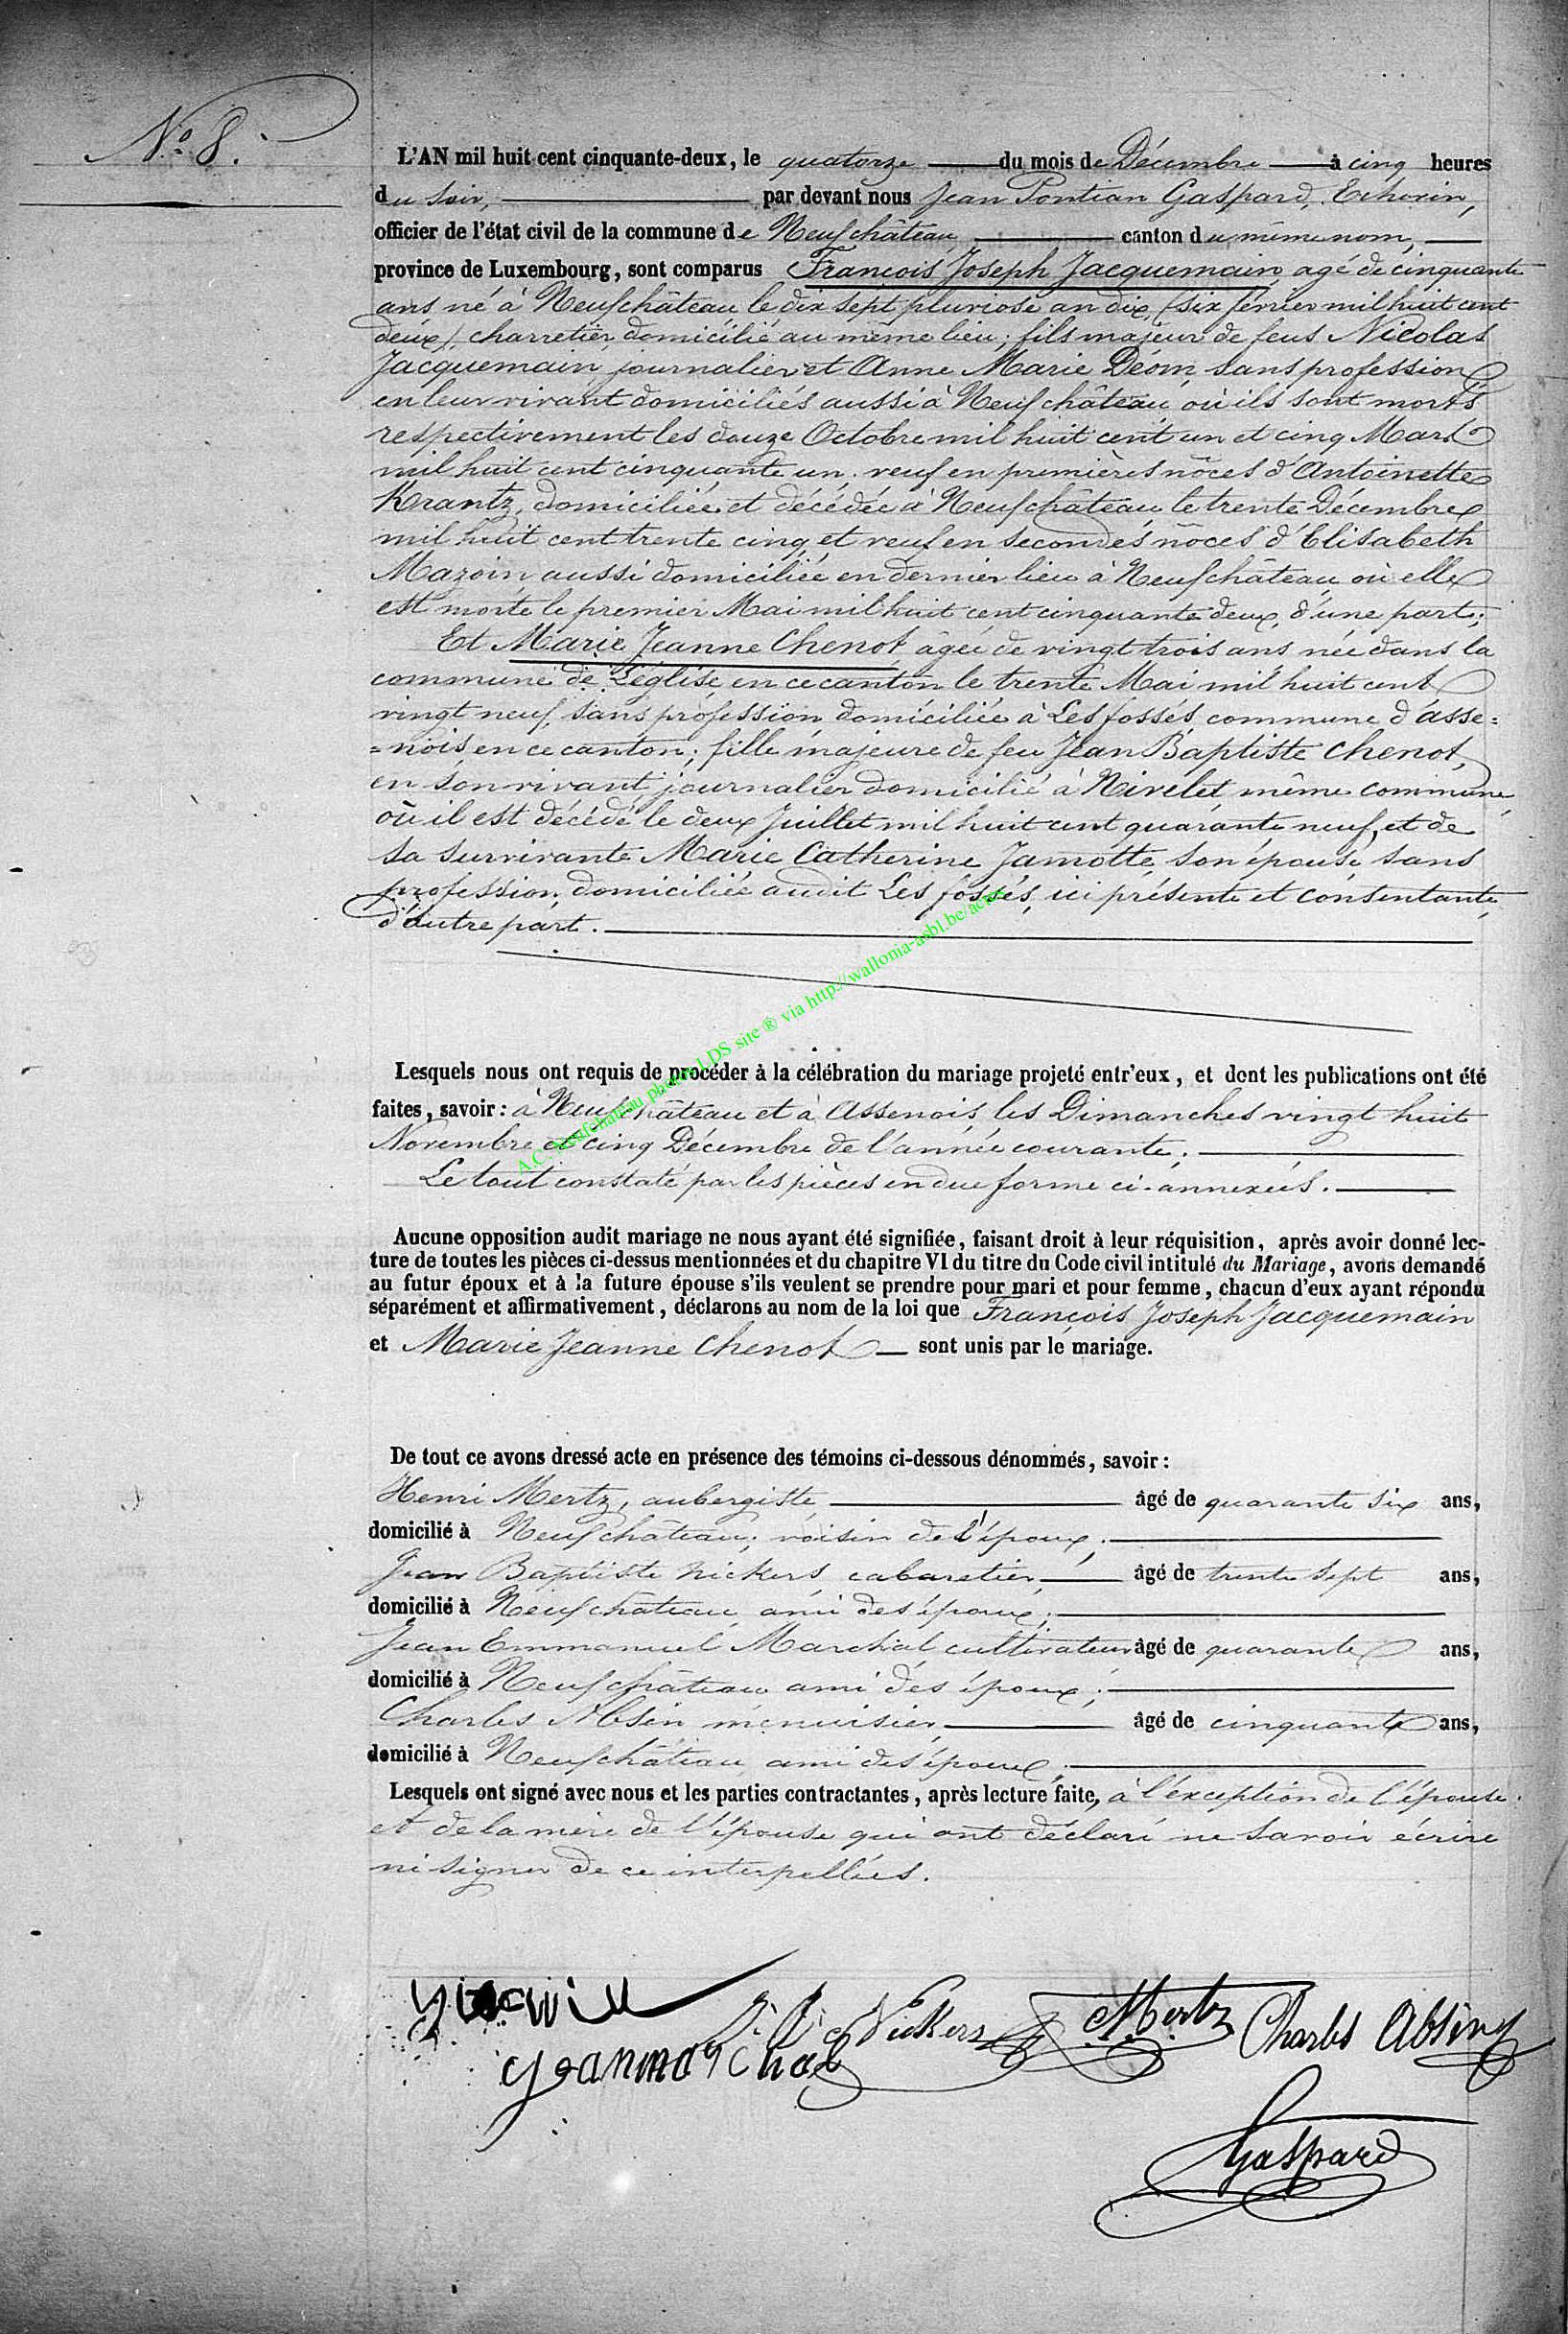 N° 8.
L'AN mil huit cent cinquante-deux, le quatorze du mois de Décembre à cinq heures
du soir, par devant nous Jean Pontian Gaspard, Echevin,
officier de l'état civil de la commune de Neufchâteau canton du même nom,
province de Luxembourg, sont comparus François Joseph Jacquemain agé de cinquante
ans né à Neufchâteau le dix sept pluviose an dix, (six février mil huit cent
deux), charretier, domicilié au même lieu; fils majeur de feus Nicolas
Jacquemain journalier et Anne Marie Déom sans profession
en leur vivant domiciliés aussi à Neufchâteau où ils sont morts
respectivement les douze Octobre mil huit cent un et cinq Mars
mil huit cent cinquante un. veuf en premières nôces d'Antoinette
Krantz, domiciliée et décédée à Neufchâteau le trente Décembre
mil huit cent trente cinq et veuf en secondes nôces d'Elisabeth
Mazoin aussi domiciliée en dernier lieu à Neufchâteau où elle
est morte le premier Mai mil huit cent cinquante deux, d'une part;
Et Marie Jeanne Chenot âgée de vingt trois ans née dans la
commune de Léglise en ce canton le trente Mai mil huit cent
vingt neuf, sans profession domiciliée à Les fossés commune d'asse=
=nois en ce canton; fille majeure de feu Jean Baptiste Chenot,
en son vivant journalier domicilié à Nivelet même commune
où il est décédé le deux Juillet mil huit cent quarante neuf, et de
sa survivante Marie Catherine Jamotte, son épouse, sans
profession, domiciliée audit Les fossés, ici présente et consentante
d'autre part.
Lesquels nous ont requis de procéder à la célébration du mariage projeté entr'eux, et dont les publications ont été
faites, savoir: à Neufchâteau et à Assenois les Dimanches vingt huit
Novembre et cinq Décembre de l'année courante.
Le tout constaté par les pièces en due forme ci-annexées.
A.C. Neufchateau photos LDS site ® via http://wallonia-asbl.be/actes
Aucune opposition audit mariage ne nous ayant été signifiée, faisant droit à leur réquisition, après avoir donné lec-
ture de toutes les pièces ci-dessus mentionnées et du chapitre VI du titre du Code civil intitulé du Mariage, avons demandé
au futur époux et à la future épouse s'ils veulent se prendre pour mari et pour femme, chacun d'eux ayant répondu
séparément et affirmativement, déclarons au nom de la loi que François Joseph Jacquemain
et Marie Jeanne Chenot sont unis par le mariage.
De tout ce avons dressé acte en présence des témoins ci-dessous dénommés, savoir:
Henri Mertz, aubergiste âgé de quarante six ans,
domicilié à Neufchâteau, voisin de l'époux;
Jean Baptiste Nickers cabaretier âgé de trente sept ans,
domicilié à Neufchâteau ami des époux;
Jean Emmanuel Marchal cultivateur âgé de quarante ans,
domicilié à Neufchâteau ami des époux;
Charles Absin menuisier âgé de cinquante ans,
domicilié à Neufchâteau ami des époux.
Lesquels ont signé avec nous et les parties contractantes, après lecture faite, à l'exception de l'épouse
et de la mère de l'épouse qui ont déclaré ne savoir écrire
ni signer de ce interpellées.
Nickers Mertz Charles Absin
Jeanmarchal
Gaspard